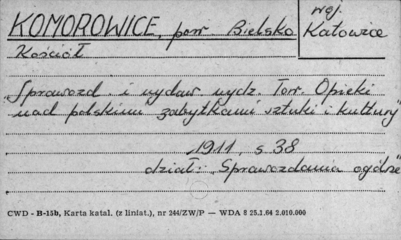 KOMOROWICE, pow. Bielsko
woj.
Katowice
Kościół
"Sprawozd. i wydaw. wydz. Tow. Opieki
nad polskimi zabytkami sztuki i kultury"
1911, s. 38
dział: "Sprawozdania ogólne"
CWD - B-15b, Karta katal. (z liniat.), nr 244/ZW/P — WDA 8 25.1.64 2.010.000